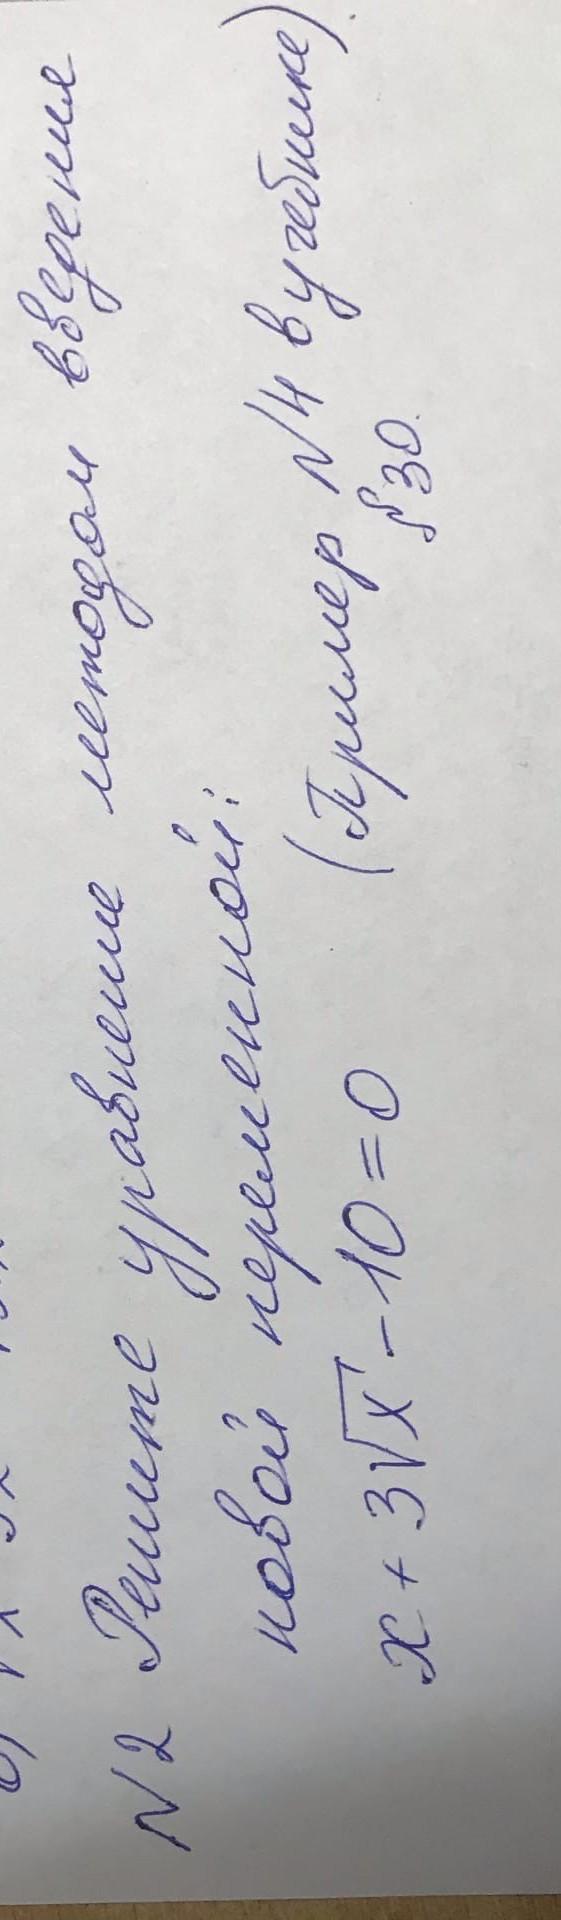 N2 Решите уравнение методом введения
новой переменной:
x + 3√x - 10 = 0 (Пример N4 в учебнике)
§30.